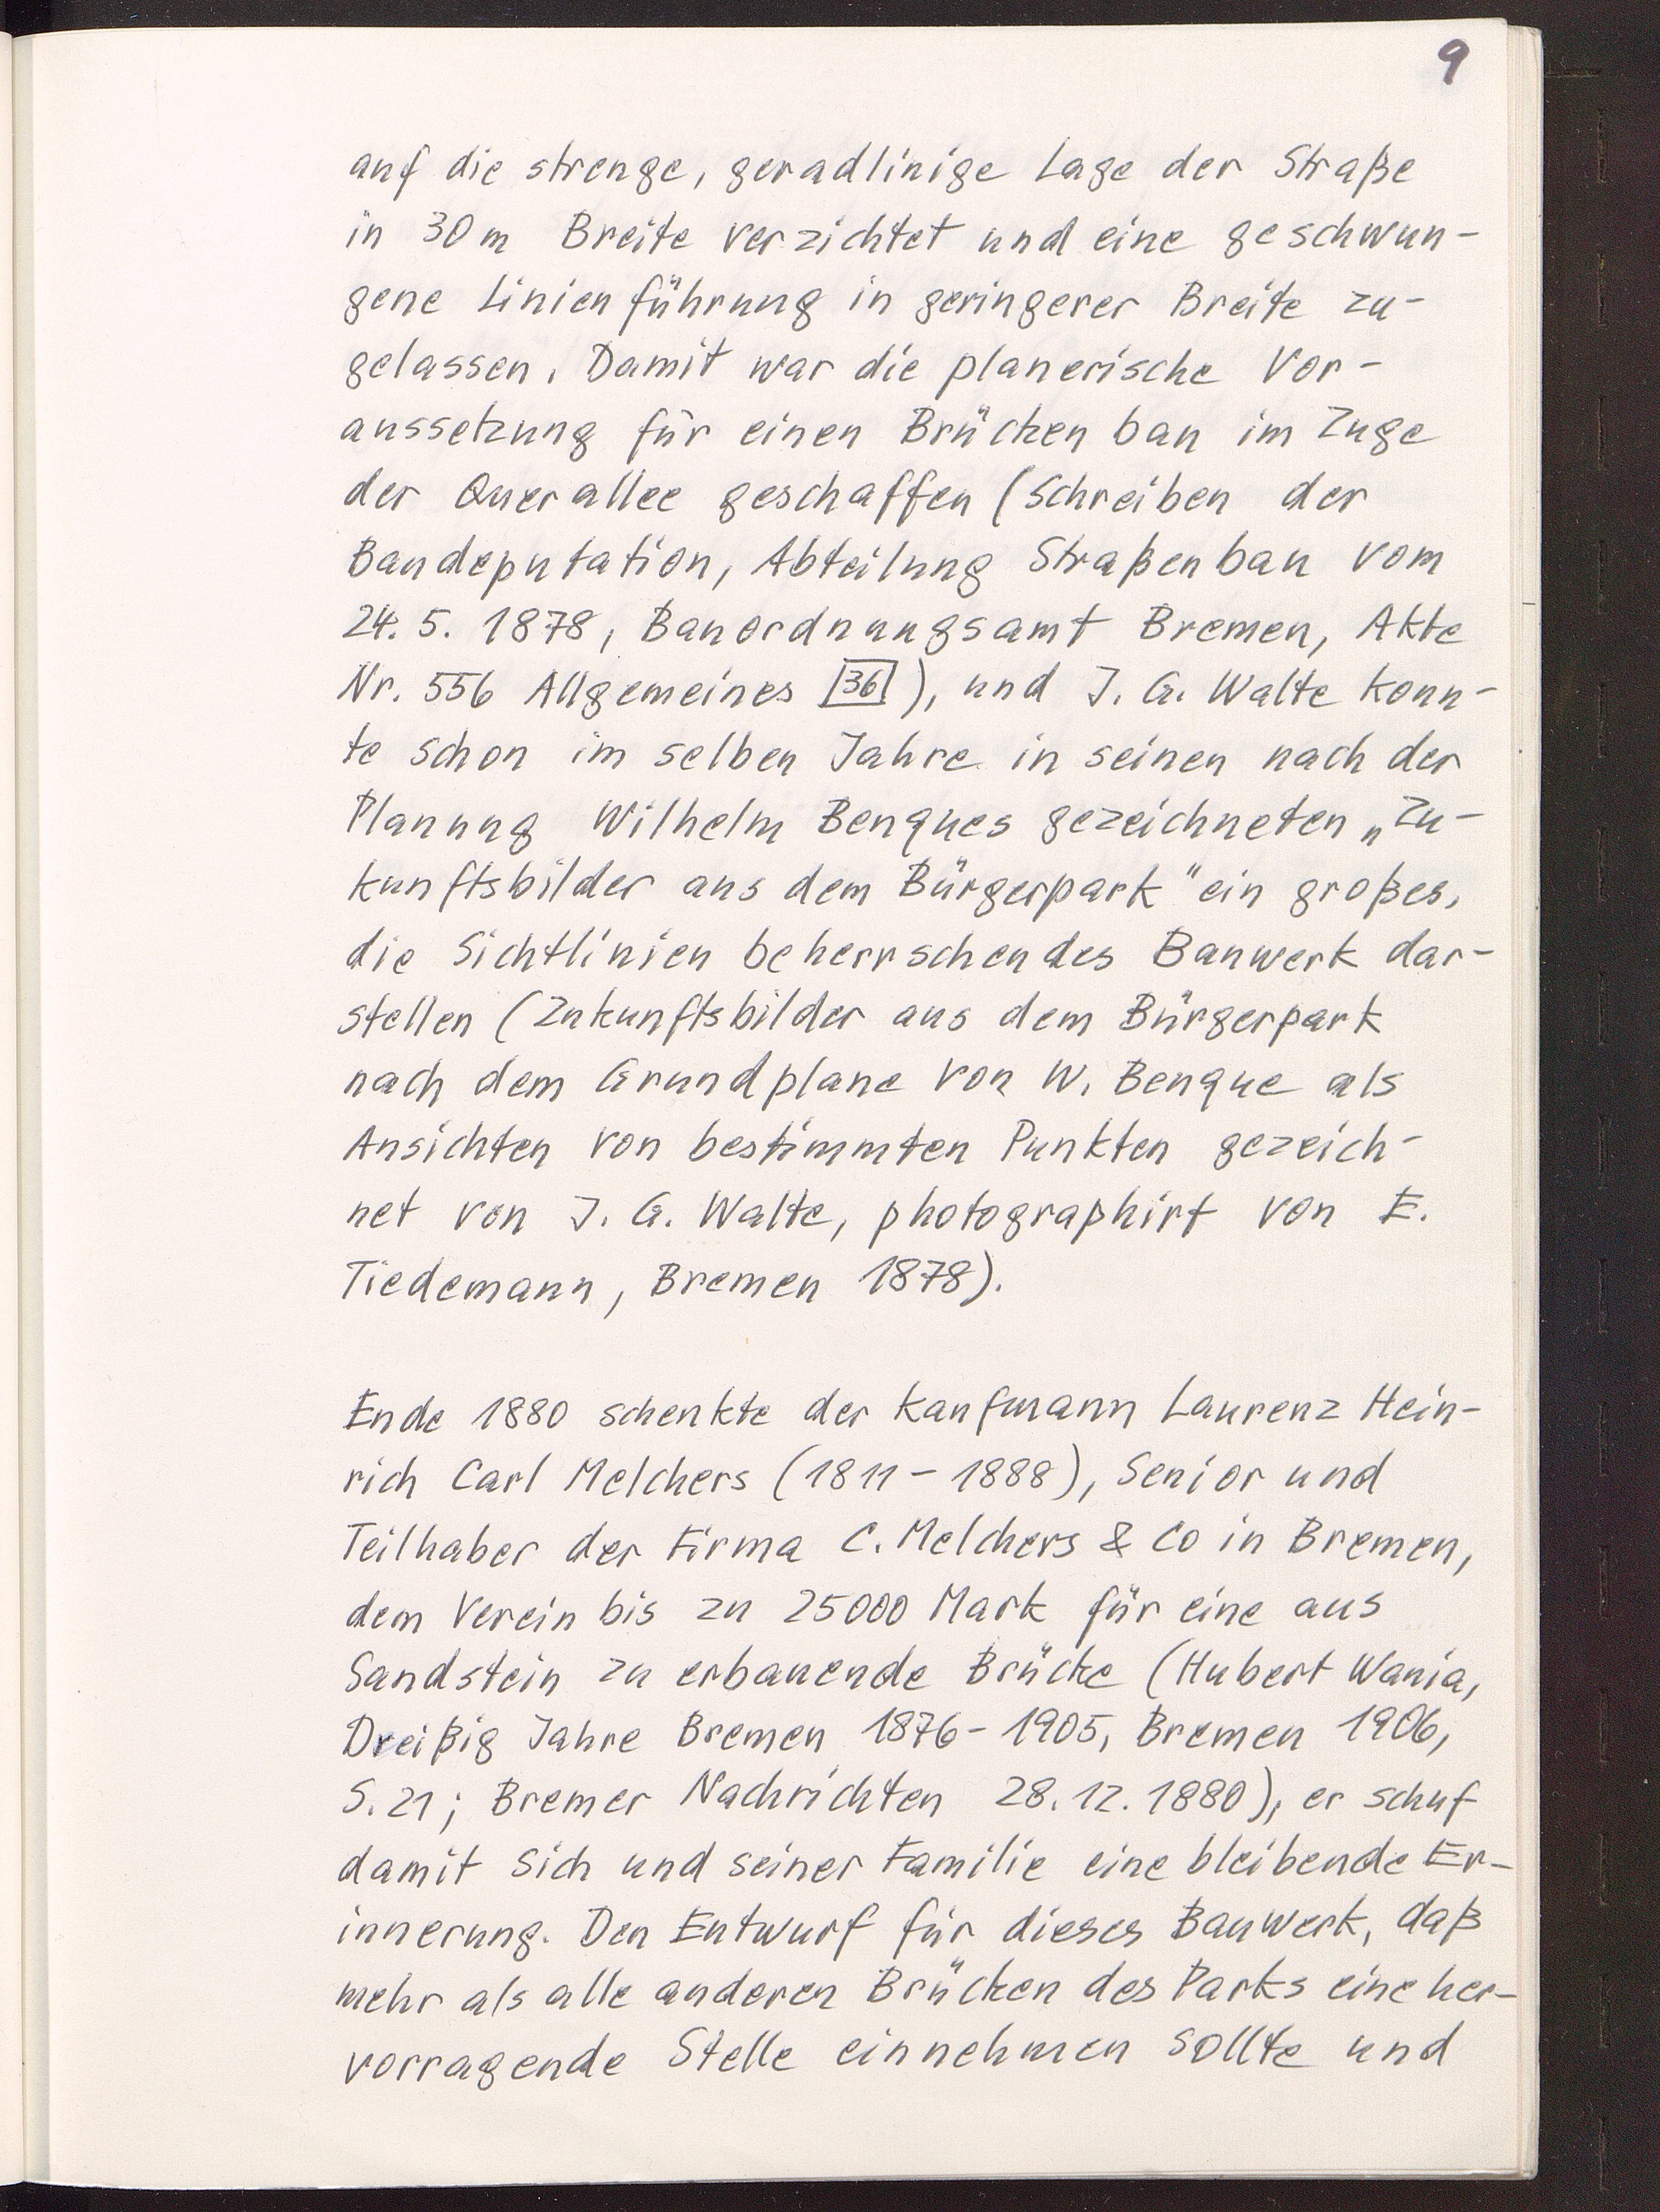 9
auf die strenge, geradlinige Lage der Straße
in 30 m Breite verzichtet und eine geschwun-
gene Linienführung in geringerer Breite zu-
gelassen. Damit war die planerische Vor-
aussetzung für einen Brückenbau im Zuge
der Querallee geschaffen (Schreiben der
Baudeputation, Abteilung Straßenbau vom
24. 5. 1878, Bauordnungsamt Bremen, Akte
Nr. 556 Allgemeines 36), und J. G. Walte konn-
te schon im selben Jahre in seinen nach der
Planung Wilhelm Benques gezeichneten „Zu-
kunftsbilder aus dem Bürgerpark" ein großes,
die Sichtlinien beherrschendes Bauwerk dar-
stellen (Zukunftsbilder aus dem Bürgerpark
nach dem Grundplane von W. Benque als
Ansichten von bestimmten Punkten gezeich-
net von J. G. Walte, photographirt von E.
Tiedemann, Bremen 1878).
Ende 1880 schenkte der Kaufmann Laurenz Hein-
rich Carl Melchers (1811 - 1888), Senior und
Teilhaber der Firma C. Melchers & Co in Bremen,
dem Verein bis zu 25000 Mark für eine aus
Sandstein zu erbauende Brücke (Hubert Wania,
Dreißig Jahre Bremen 1876 - 1905, Bremen 1906,
S. 21; Bremer Nachrichten 28. 12. 1880), er schuf
damit sich und seiner Familie eine bleibende Er-
innerung. Den Entwurf für dieses Bauwerk, daß
mehr als alle anderen Brücken des Parks eine her-
vorragende Stelle einnehmen sollte und